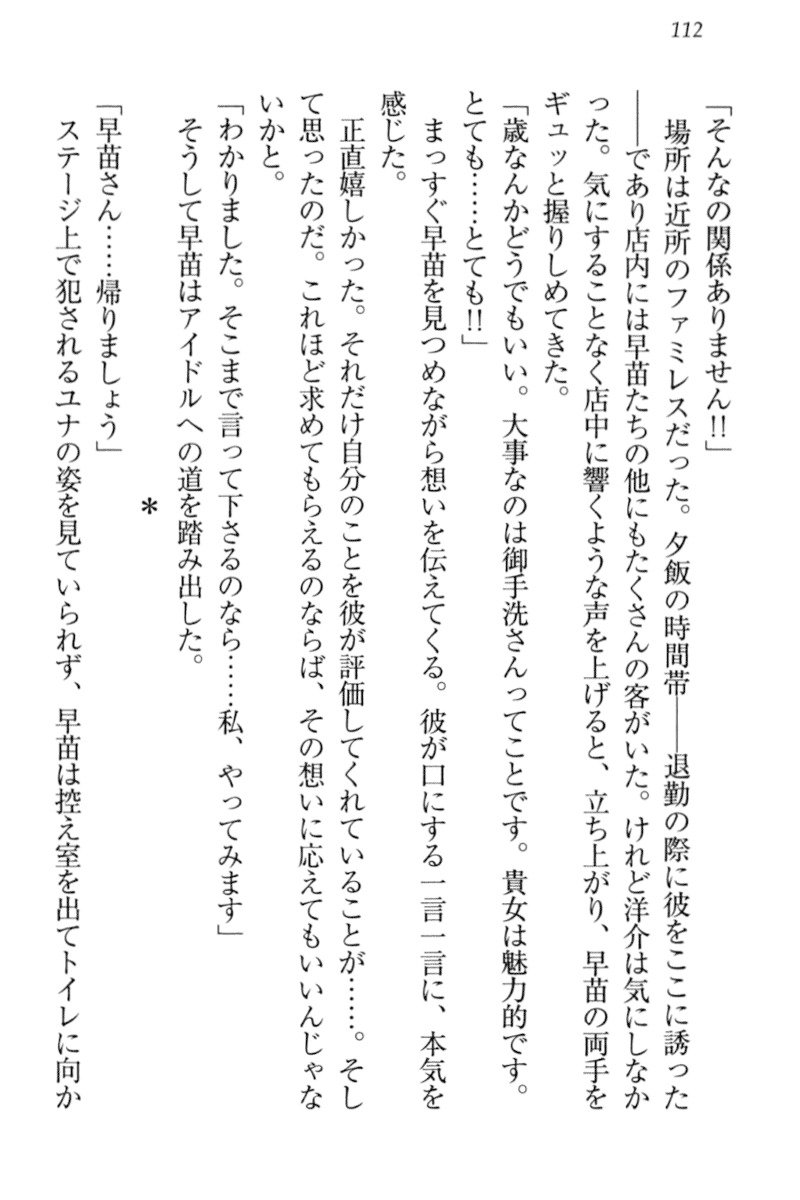 112
「そんなの関係ありません!!」
場所は近所のファミレスだった。夕飯の時間帯――退勤の際に彼をここに誘った
――であり店内には早苗たちの他にもたくさんの客がいた。けれど洋介は気にしなか
った。気にすることなく店中に響くような声を上げると、立ち上がり、早苗の両手を
ギュッと握りしめてきた。
「歳なんかどうでもいい。大事なのは御手洗さんってことです。貴女は魅力的です。
とても……とても!!」
まっすぐ早苗を見つめながら想いを伝えてくる。彼が口にする一言一言に、本気を
感じた。
正直嬉しかった。それだけ自分のことを彼が評価してくれていることが……。そし
て思ったのだ。これほど求めてもらえるのならば、その想いに応えてもいいんじゃな
いかと。
「わかりました。そこまで言って下さるのなら……私、やってみます」
そうして早苗はアイドルへの道を踏み出した。
*
「早苗さん……帰りましょう」
ステージ上で犯されるユナの姿を見ていられず、早苗は控え室を出てトイレに向か